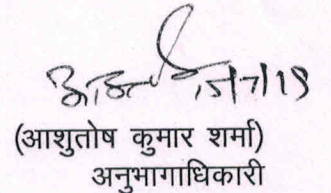 15/7/19
(आशुतोष कुमार शर्मा)
अनुभागाधिकारी